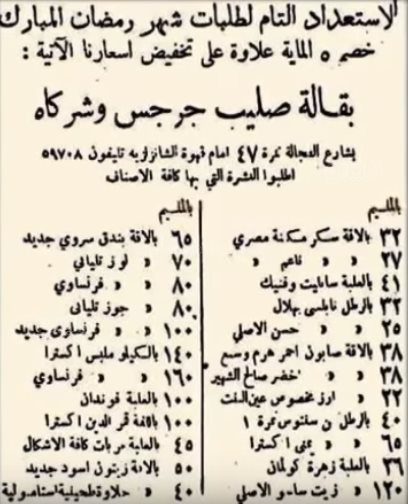 الاستعداد التام لطلبات شهر رمضان المبارك
خصم ٥ الماية علاوة على تخفيض اسعارنا الآتية :
بقالة صليب جرجس وشركاه
بشارع الفجالة نمرة ٤٧ امام قهوة الشانزلزيه تليفون ٥٩٧٠٨
اطلبوا النشرة التي بها كافة الاصناف
بالمليم
٣٢ بالاقة سكر مكنة مصري
٢٧ » » ناعم »
٤١ بالعلبة سانليت وفنيك
٣٢ بالرطل نابلسي بهلال
٢٥ » » حسن الاصلي
٣٨ بالاقة صابون احمر هرم وسبع
٣٨ » » اخضر صالح الشهير
٢٢ » ارز مخصوص عين البنت
٤٠ بالرطل بن سنتوس نمرة ١
٦٥ » » يمنى اكسترا
٣٦ بالعلبة زهرة كولمان
١٢٠ » زيت سامو الاصلي
بالمليم
٦٥ بالاقة بندق سروي جديد
٧٠ » » لوز تلياني
٨٠ » » فرنساوي
٨٠ » » جوز تلياني
١٠٠ » » فرنساوى جديد
١٤٠ بالكيلو ملبس اكسترا
١٦٠ » » فرنساوي
١٠٠ بالعلبة فوندان
١٠٠ باللفة قمر الدين اكسترا
٤٥ بالعلبة مربات كافة الاشكال
٥٠ بالاقة زيتون اسود جديد
٤٠ » حلاوة طحينية استامبولية